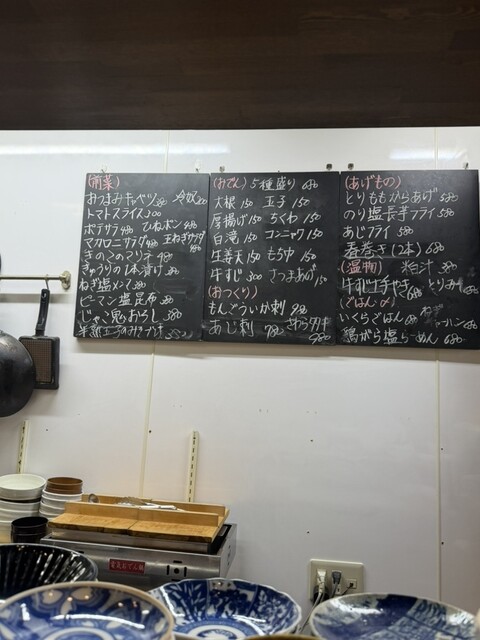 (前菜)
おつまみキャベツ 冷奴200
トマトスライス300
ポテサラ480 ひねポン480
マカロニサラダ480 玉ねぎサラダ480
きのこのマリネ480
きゅうりの1本漬け380
ねぎ塩メンマ380
ピーマン塩昆布380
じゃこ鬼おろし380
半熟玉子の
(おでん) 5種盛り680
大根150 玉子150
厚揚げ150 ちくわ150
白滝150 コンニャク150
生姜天150 もち巾150
牛すじ300 さつまあげ150
(おつくり)
もんごういか刺980
あじ刺780 さわらタタキ980
(あげもの)
とりももからあげ580
のり塩長芋フライ580
あじフライ580
春巻き(2本)680
(温物) 粕汁380
牛すじ
(ごはん・〆)
いくらごはん680
鶏がら塩らーめん680
電気おでん鍋